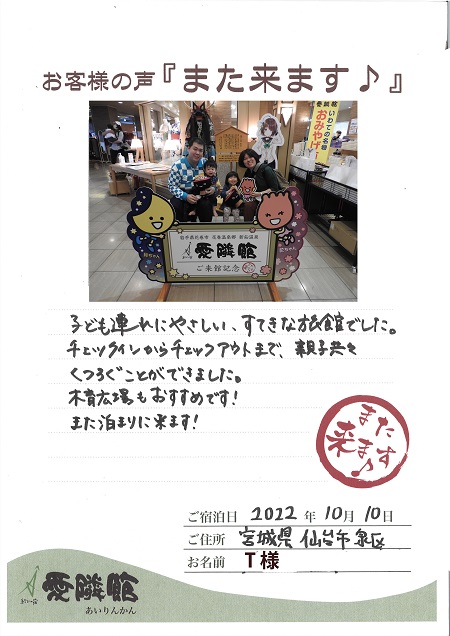 お客様の声『また来ます♪』
いわての名物
おみやげ
岩手県花巻市 花巻温泉郷 新鉛温泉
愛隣館
ご来館記念
子ども連れにやさしい、すてきな旅館でした。
チェックインからチェックアウトまで、親子共々
くつろぐことができました。
木育広場もおすすめです!
また泊まりに来ます!
また
来ます♪
ご宿泊日 2022年10月10日
ご住所 宮城県 仙台市泉区
お名前 T様
愛隣館
あいりんかん